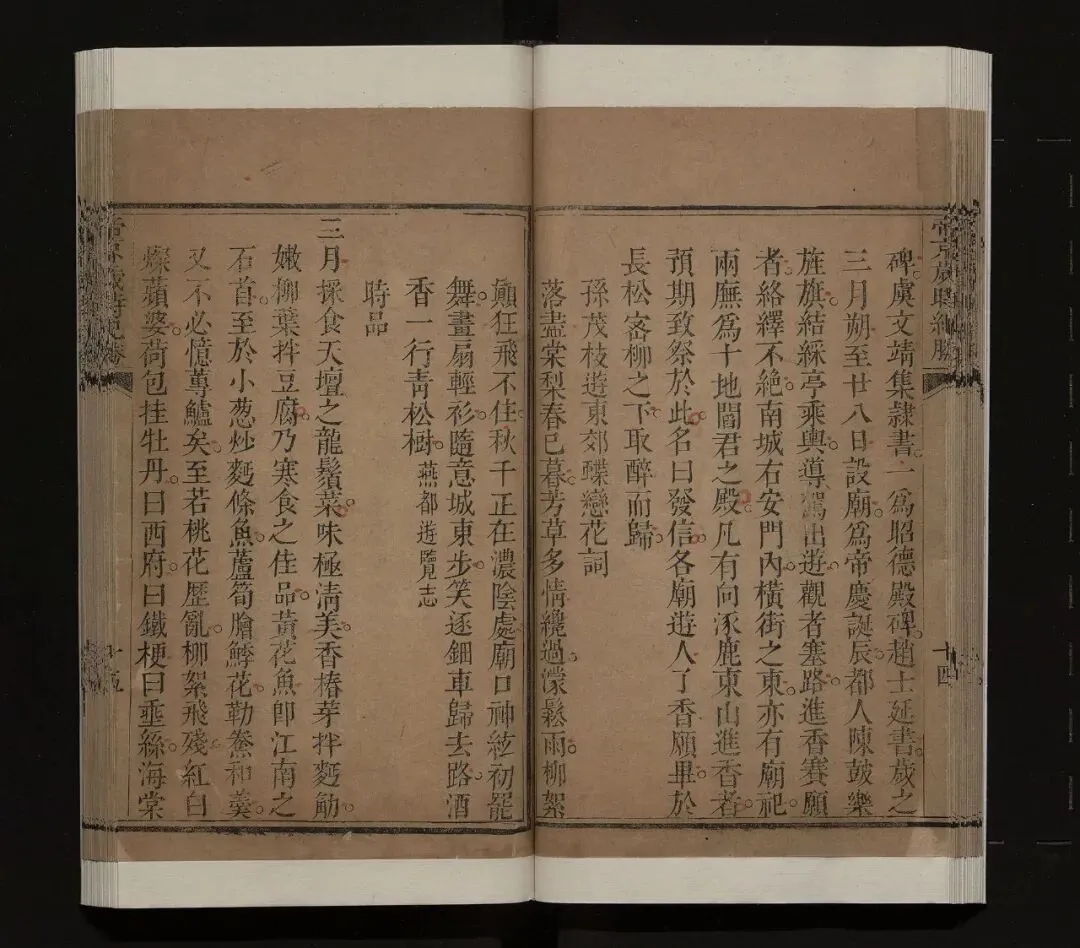 碑虞文靖集隷書一爲昭德殿碑趙士延書歲之
三月朔至廿八日設廟爲帝慶誕辰都人陳鼓樂
旌旗結綵亭乘輿導駕出遊觀者塞路進香賽願
者絡繹不絶南城右安門內橫街之東亦有廟祀
兩廡爲十地閻君之殿凡有向涿鹿東山進香者
預期致祭於此名曰發信各廟遊人了香願畢於
長松密柳之下取醉而歸
孫茂枝遊東郊蝶戀花詞
落盡棠梨春已暮芳草多情纔過濛鬆雨柳絮
顚狂飛不住秋千正在濃陰處廟口神絃初罷
舞畫扇輕衫隨意城東步笑逐鈿車歸去路酒
香一行靑松樹燕都遊覽志
時品
三月採食天壇之龍鬚菜味極淸美香椿芽拌麪觔
嫩柳葉拌豆腐乃寒食之佳品黃花魚卽江南之
石首至於小葱炒麪條魚蘆筍膾鰣花勒鮝和羹
又不必憶蓴鱸矣至若桃花歷亂柳絮飛殘紅白
爍蘋婆荷包挂牡丹曰西府曰鐵梗曰垂絲海棠
十四
十五